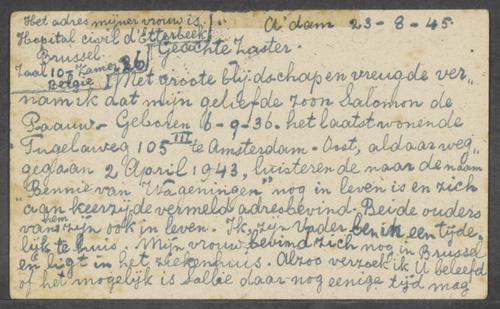 Het adres mijner vrouw is
Hopital civil d'Etterbeek
Brussel
Zaal 107 Kamer 26
België
A'dam 23-8-45
Geachte Zuster.
Met groote blijdschap en vreugde ver„
nam ik dat mijn geliefde zoon Salomon de
Paauw – Geboren 6-9-36. het laatst wonende
Tugelaweg 105 III te Amsterdam-Oost, aldaar weg„
gegaan 2 April 1943, luisterende naar de naam
"Bennie van Wageningen" nog in leven is en zich
aan keerzijde vermeld adres bevind. Beide ouders
van hem zijn ook in leven. Ik, zijn Vader ben in een tijde„
lijk tehuis. Mijn vrouw bevind zich nog in Brussel
en ligt in het ziekenhuis. Alzoo verzoek ik U beleefd
of het mogelijk is Sallie daar nog eenige tijd mag